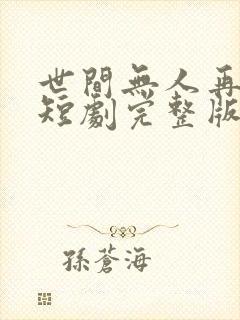 世間無人再
短劇完整版
孫蒼海